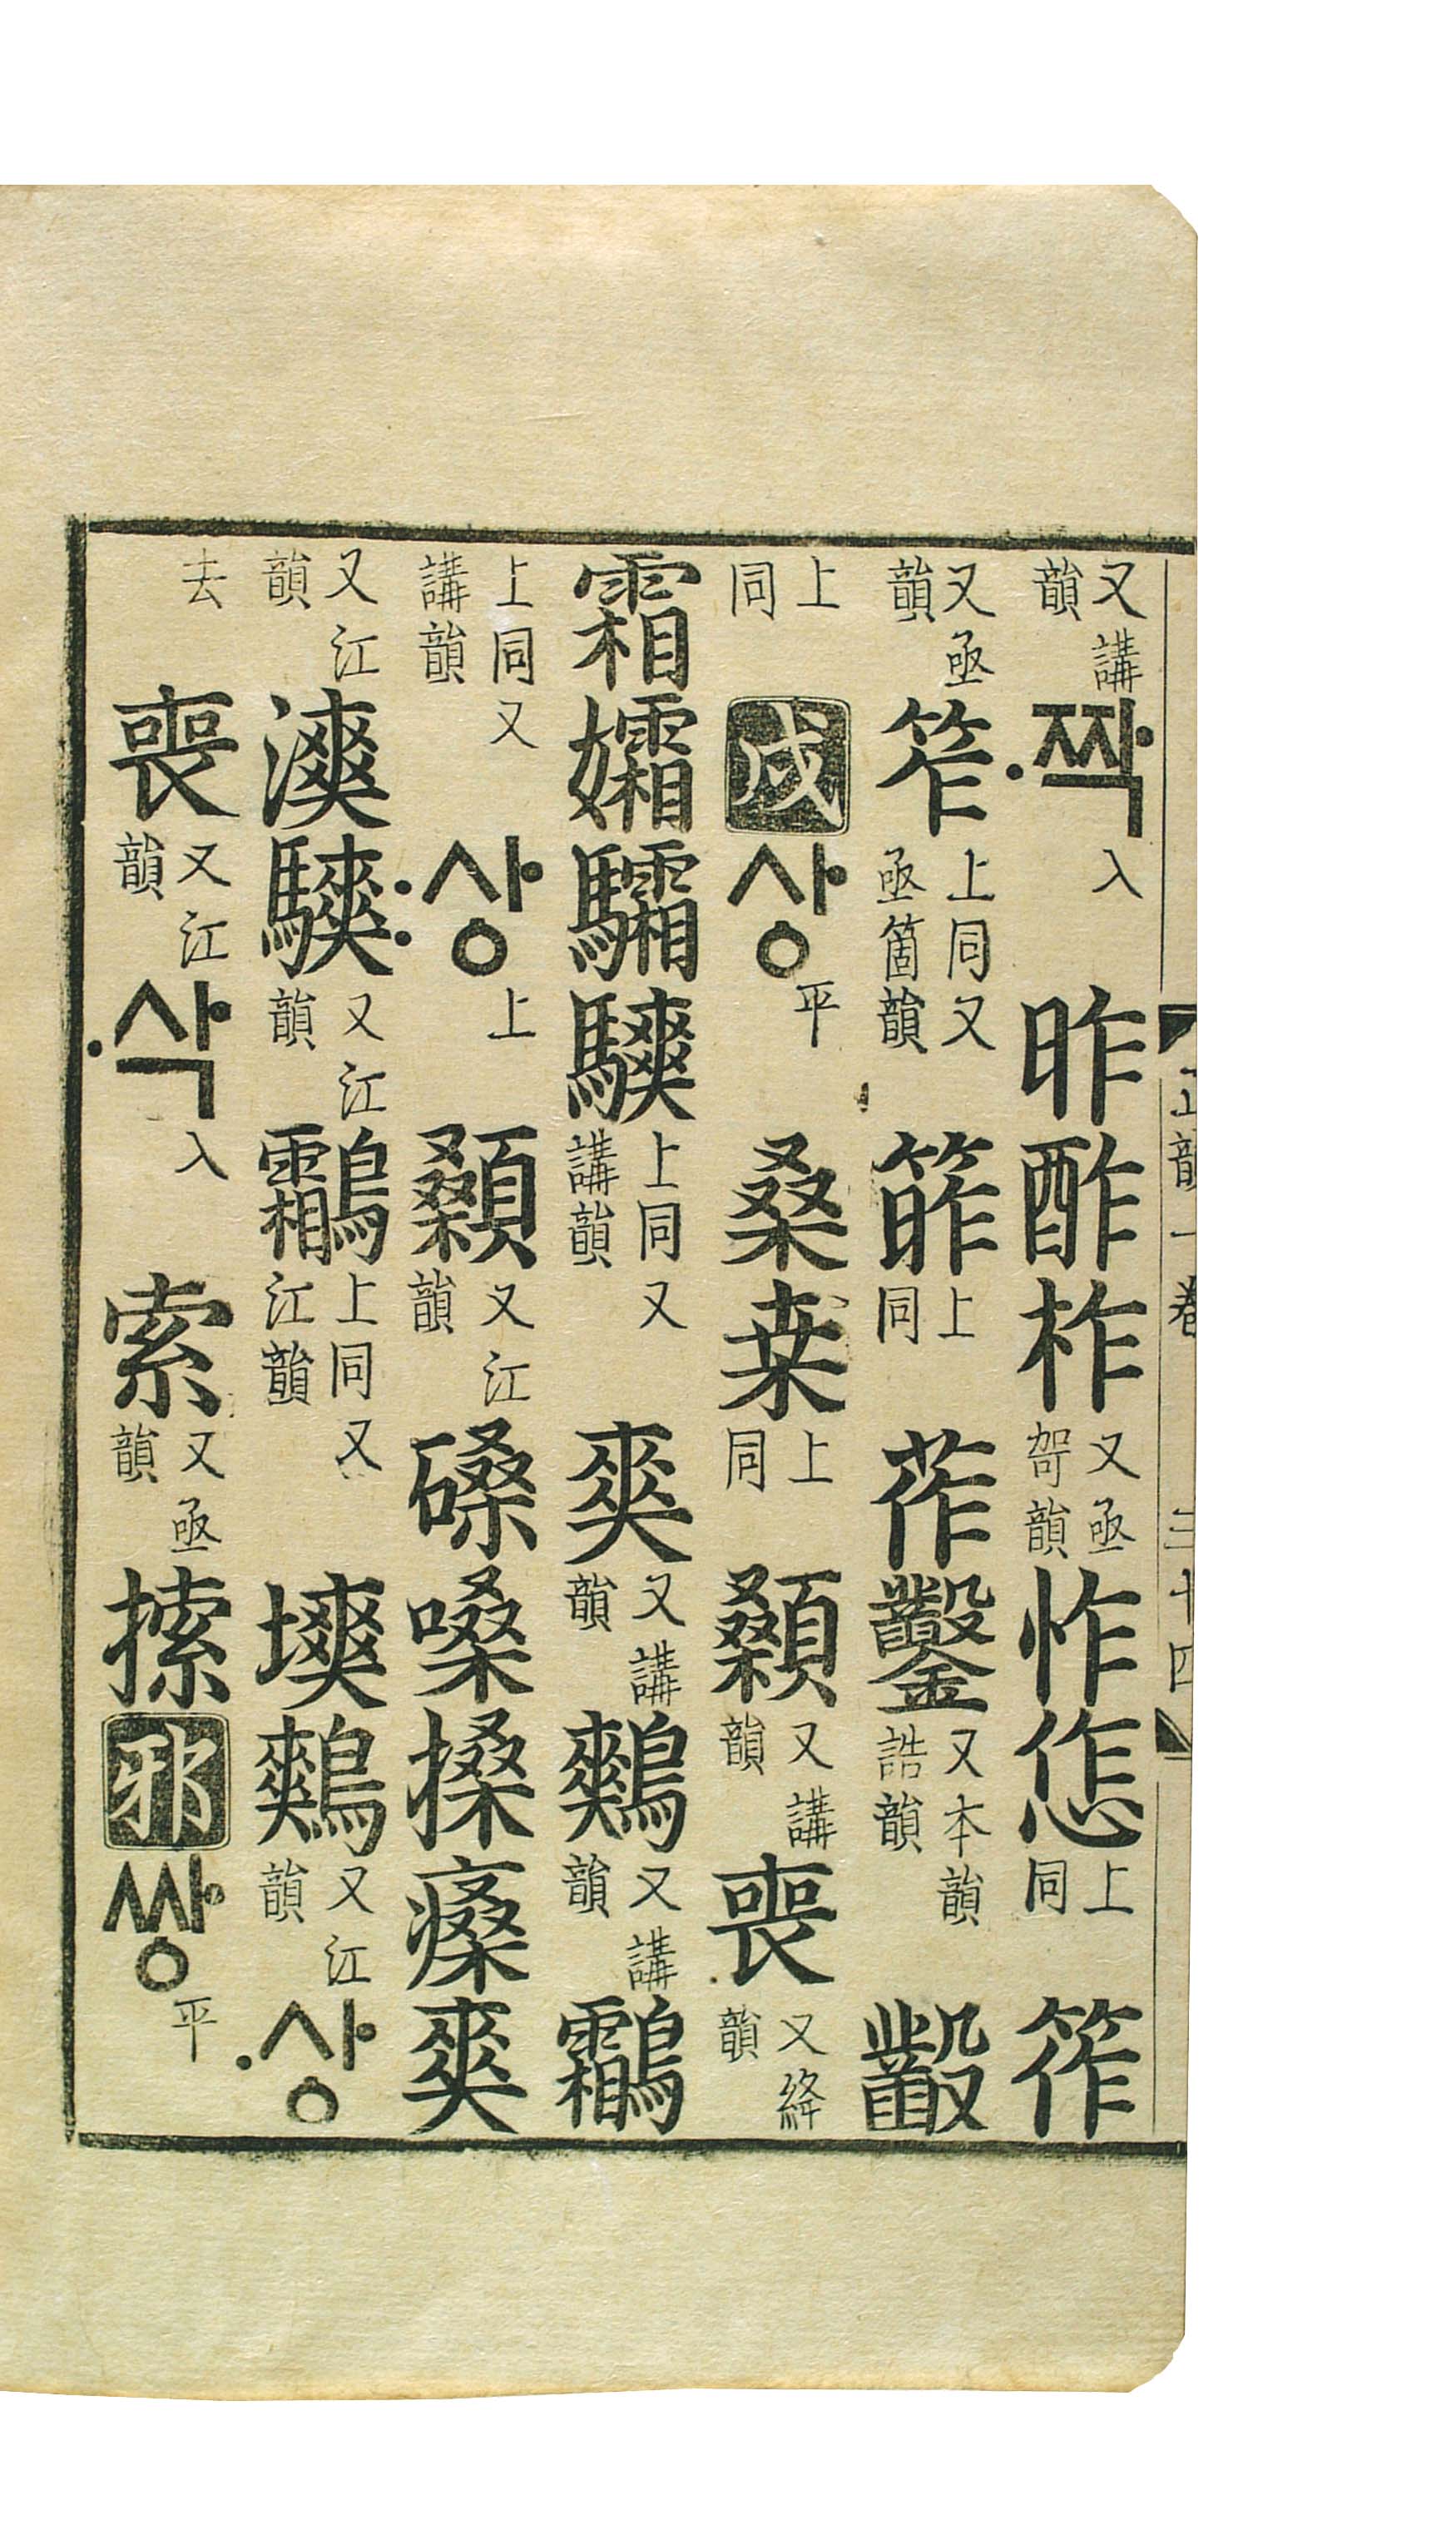 又講韻 ·짝 入 昨酢柞 又亟哿韻 怍 上同 筰
又亟韻 笮 上同又亟箇韻 上同 莋鑿 又本韻誥韻
上同 戌 상 平 桑桒 上同 顙 又講韻 喪 又絳韻
霜孀驦騻 上同又講韻 爽 又講韻 鷞 又講韻 鸘
上同又講韻 :상 上 顙 又江韻 磉嗓搡 爽
又江韻 漺騻 又江韻 鸘 上同又江韻 塽鷞 又江韻 ·상
去 喪 又江韻 ·삭 入 索 又亟韻 邪 쌍 平